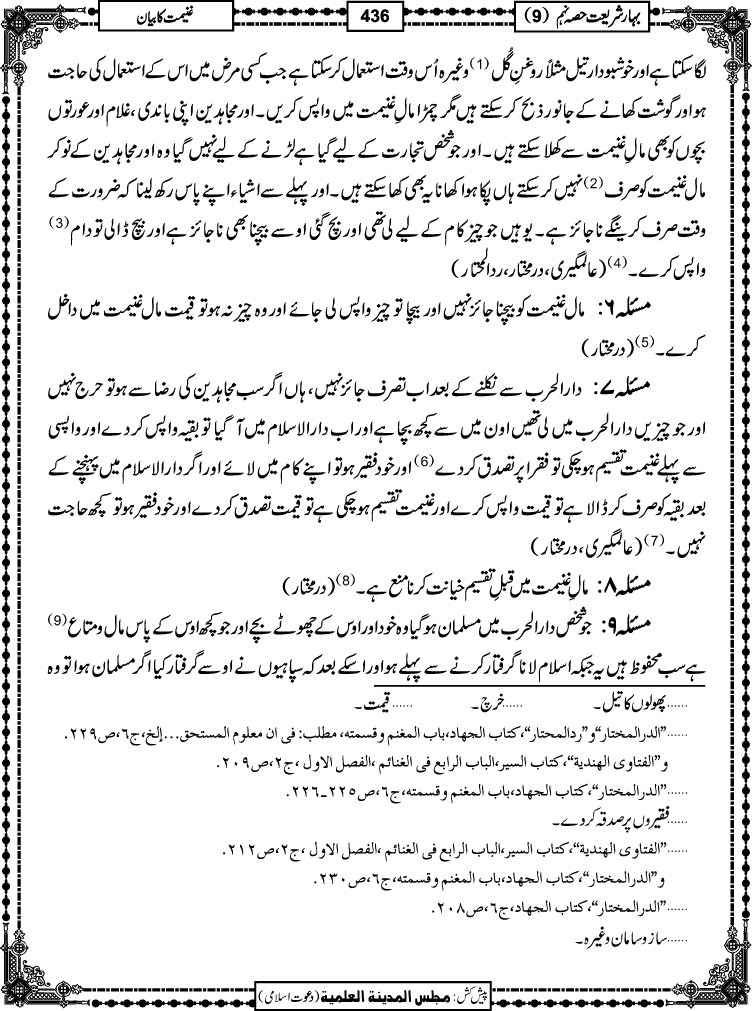 بہارِ شریعت حصہ نہم (9)
436
غنیمت کا بیان
لگا سکتا ہے اور خوشبودار تیل مثلاً روغنِ گُل (1) وغیرہ اُس وقت استعمال کر سکتا ہے جب کسی مرض میں اس کے استعمال کی حاجت
ہو اور گوشت کھانے کے جانور ذبح کر سکتے ہیں مگر چمڑا مالِ غنیمت میں واپس کریں۔ اور مجاہدین اپنی باندی، غلام اور عورتوں
بچوں کو بھی مالِ غنیمت سے کھلا سکتے ہیں۔ اور جو شخص تجارت کے لیے گیا ہے لڑنے کے لیے نہیں گیا وہ اور مجاہدین کے نوکر
مال غنیمت کو صرف (2) نہیں کر سکتے ہاں پکا ہوا کھانا یہ بھی کھا سکتے ہیں۔ اور پہلے سے اشیاء اپنے پاس رکھ لینا کہ ضرورت کے
وقت صرف کرینگے ناجائز ہے۔ یوہیں جو چیز کام کے لیے لی تھی اور بچ گئی اوسے بیچنا بھی ناجائز ہے اور بیچ ڈالی تو دام (3)
واپس کرے۔ (4) (عالمگیری، درمختار، ردالمحتار)
مسئلہ ۶: مال غنیمت کو بیچنا جائز نہیں اور بیچا تو چیز واپس لی جائے اور وہ چیز نہ ہو تو قیمت مال غنیمت میں داخل
کرے۔ (5) (درمختار)
مسئلہ ۷: دارالحرب سے نکلنے کے بعد اب تصرف جائز نہیں، ہاں اگر سب مجاہدین کی رضا سے ہو تو حرج نہیں
اور جو چیزیں دارالحرب میں لی تھیں اون میں سے کچھ بچا ہے اور اب دارالاسلام میں آ گیا تو بقیہ واپس کر دے اور واپسی
سے پہلے غنیمت تقسیم ہو چکی تو فقرا پر تصدق کر دے (6) اور خود فقیر ہو تو اپنے کام میں لائے اور اگر دارالاسلام میں پہنچنے کے
بعد بقیہ کو صرف کر ڈالا ہے تو قیمت واپس کرے اور غنیمت تقسیم ہو چکی ہے تو قیمت تصدق کر دے اور خود فقیر ہو تو کچھ حاجت
نہیں۔ (7) (عالمگیری، درمختار)
مسئلہ ۸: مالِ غنیمت میں قبلِ تقسیم خیانت کرنا منع ہے۔ (8) (درمختار)
مسئلہ ۹: جو شخص دارالحرب میں مسلمان ہو گیا وہ خود اور اوس کے چھوٹے بچے اور جو کچھ اوس کے پاس مال و متاع (9)
ہے سب محفوظ ہیں یہ جبکہ اسلام لانا گرفتار کرنے سے پہلے ہو اور اسکے بعد کہ سپاہیوں نے اوسے گرفتار کیا اگر مسلمان ہوا تو وہ
......پھولوں کا تیل۔ ......خرچ۔ ......قیمت۔
......”الدرالمختار“و”ردالمحتار“، کتاب الجھاد، باب المغنم وقسمتہ، مطلب: فی ان معلوم المستحق...إلخ، ج۶، ص۲۲۹.
و”الفتاوی الھندیۃ“، کتاب السیر، الباب الرابع فی الغنائم، الفصل الاول، ج۲، ص۲۰۹.
......”الدرالمختار“، کتاب الجھاد، باب المغنم وقسمتہ، ج۶، ص۲۲۵۔۲۲۶.
......فقیروں پر صدقہ کر دے۔
......”الفتاوی الھندیۃ“، کتاب السیر، الباب الرابع فی الغنائم، الفصل الاول، ج۲، ص۲۱۲.
و”الدرالمختار“، کتاب الجھاد، باب المغنم وقسمتہ، ج۶، ص۲۳۰.
......”الدرالمختار“، کتاب الجھاد، ج۶، ص۲۰۸.
......سازوسامان وغیرہ۔
پیش کش: مجلس المدینۃ العلمیۃ (دعوت اسلامی)